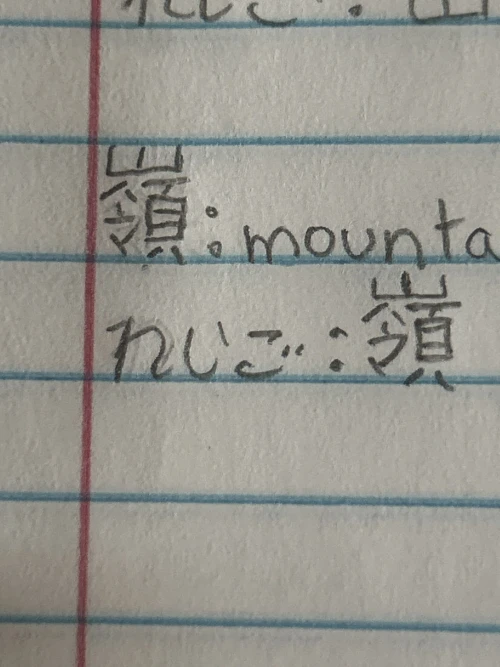 嶺:mounta
れじご:嶺